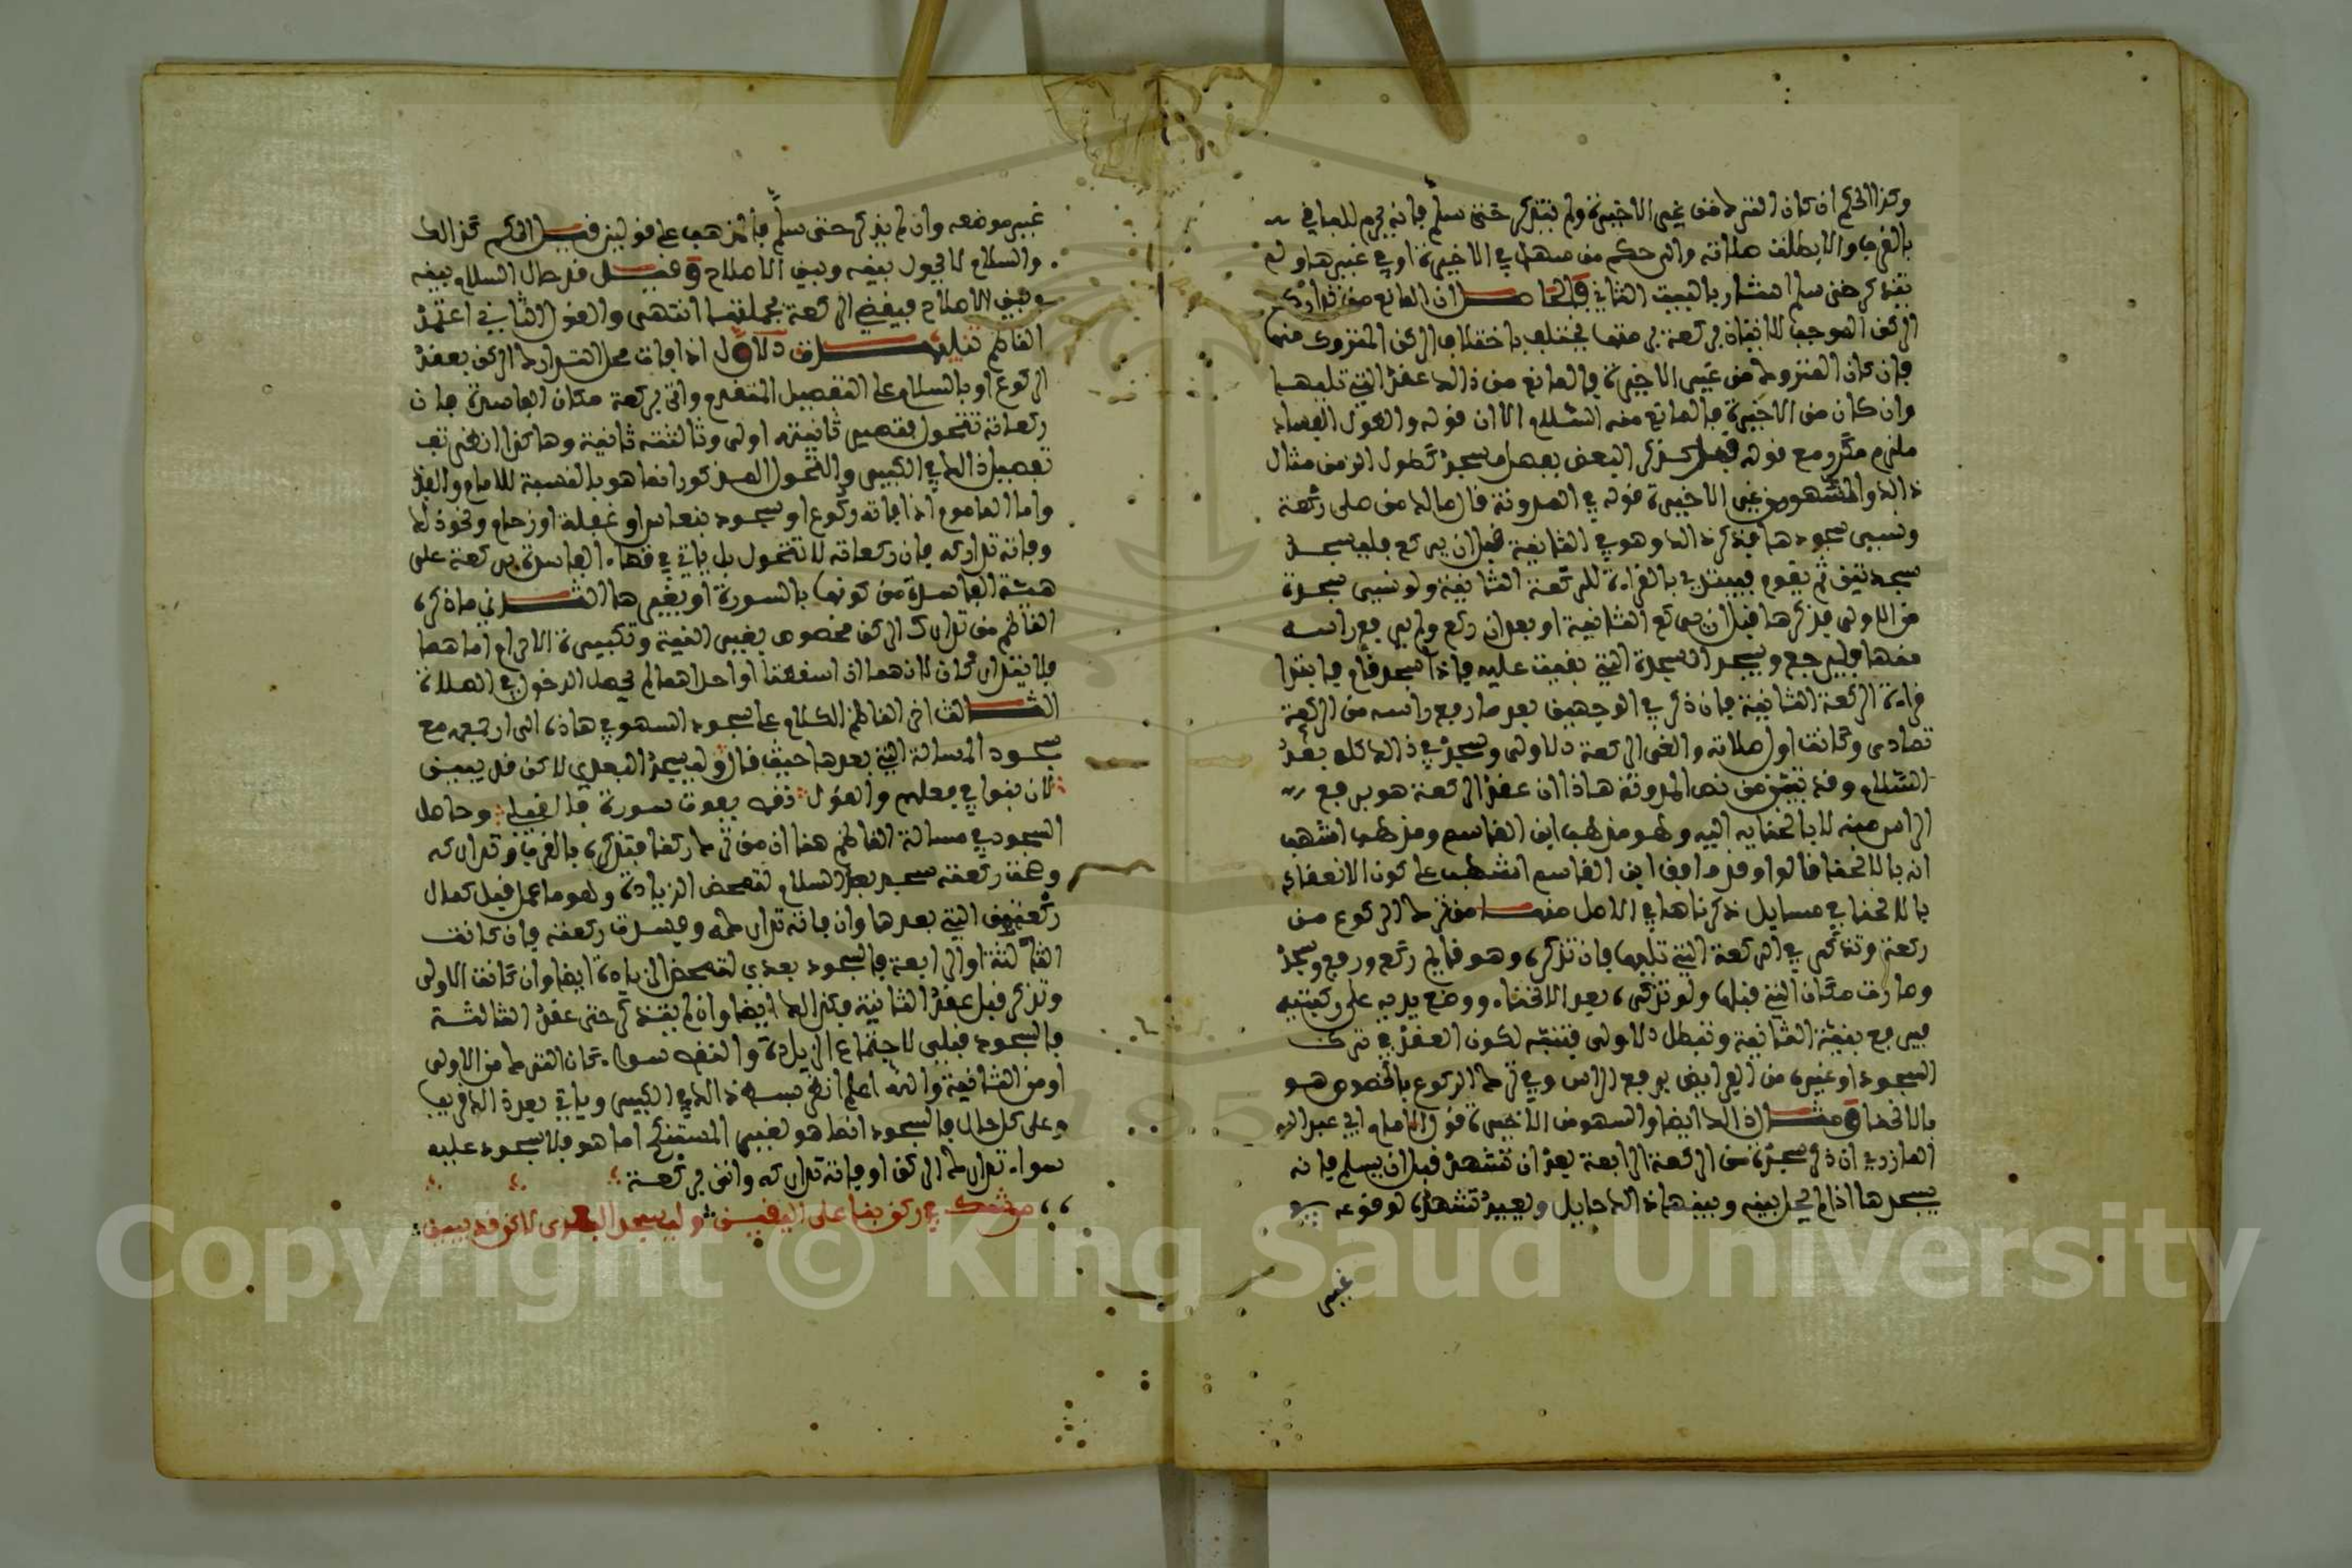 وكذا الحكم ان كان الترك من غير الاخيرة ولم يتذكر حتى سلم فانه يحرم للباقي
بالقرب والا بطلت صلاته والى حكم من سها في الاخيرة او في غيرها ولم
يتذكر حتى سلم اشار بالبيت الثاني والحاصل ان المانع من تدارك
الركن الموجب للاتيان بركعة برمتها يختلف باختلاف الركن المتروك منها
فان كان المتروك من غير الاخيرة فالمانع من ذالك عقد التي تليها
وان كان من الاخيرة فالمانع منه السلام الا ان قوله والطول الفساد
ملزم مكرر مع قوله قبل كذكر البعض بفصل مسجد كطول الزمن مثال
ذالك والسهو من غير الاخيرة قوله في المدونة قال مالك من صلى ركعة
ونسي سجودها فذكر ذالك وهو في الثانية قبل ان يركع فليسجد
سجدتين ثم يقوم فيبتدئ بالقراءة للركعة الثانية ولو نسي سجدة
من الاولى فذكرها قبل ان يركع الثانية او بعد ان ركع ولم يرفع راسه
منها فليرجع ويسجد السجدة التي بقيت عليه فاذا سجد قام فابتدا
قراءة الركعة الثانية فان ذكر في الوجهين بعد ما رفع راسه من الركعة
تمادى وكانت اول صلاته والغى الركعة الاولى وسجد في ذالك كله بعد
السلام وقد تبين من نص المدونة هاذا ان عقد الركعة هو برفع
الراس منه لا بالانحناء اليه وهو مذهب ابن القاسم ومذهب اشهب
انه بالانحنا قالوا وقد وافق ابن القاسم اشهب على كون الانعقاد
بالانحنا في مسايل ذكرناها في الاصل منها من ترك الركوع من
ركعة وتذكر في الركعة التي تليها فان تذكره وهو قايم ركع ورفع وسجد
وصارت مكان التي قبلها ولو تذكره بعد الانحناء ووضع يديه على ركبتيه
فيرفع بنية الثانية وتبطل الاولى فتنبه لكون العقد في ترك
السجود او غيره من الفرايض برفع الراس وفي ترك الركوع بالخصوص هو
بالانحنا ومثال ذالك ايضا والسهو من الاخيرة قول الامام ابي عبد الله
المازري ان ذكر سجدة من الركعة الرابعة بعد ان تشهد قبل ان يسلم فانه
يسجدها اذا لم يحل بينه وبينها ذالك حايل ويعيد تشهده لوقوعه في
غير
غير موضعه وان لم يذكر حتى سلم فالمذهب على قولين قيل الحكم كذالك
والسلام لا يحول بينه وبين الاصلاح وقيل قد حال السلام بينه
وبين الاصلاح فيقضي الركعة بجملتها انتهى والقول الثاني اعتمد
الناظم تنبيهات الاول اذا فات محل التدارك الركن بعقد
الركوع او بالسلام على التفصيل المتقدم واتى بركعة مكان الفاسدة فان
ركعاته تتحول فتصير ثانيته اولى وثالثته ثانية وهاكذا انظر
تفصيل ذالك في الكبير والتحول المذكور انما هو بالنسبة للامام والفذ
واما الماموم اذا فاته ركوع او سجود بنعاس او غفلة او زحام ونحو ذلك
وفاته تداركه فان ركعاته لا تتحول بل ياتي في قضاء الفاسدة بركعة على
هيئة الفاسدة من كونها بالسورة او بغيرها الثاني ما ذكره
الناظم من تدارك الركن مخصوص بغير النية وتكبيرة الاحرام اما هما
فلا يتداركان لانهما ان اسقطتا او احداهما لم يحصل الدخول في الصلاة
الثالث اخر الناظم الكلام على سجود السهو في هاذه الى ان جمعه مع
سجود المسالة التي بعدها حيث قال وليسجد البعدي لاكن قد يبين
لان بنوا في فعلهم والقول نقص بفوت سورة فالقبلي وحاصل
السجود في مسالة الناظم هنا ان من ترك ركنا فتذكره بالقرب وتداركه
وصحت ركعته سجد بعد السلام لتمحض الزيادة وهو ما عمل قبل كمال
ركعته من التي بعدها وان فاته تداركه وفسدت ركعته فان كانت
الثالثة او الرابعة فالسجود بعدي لتمحض الزيادة ايضا وان كانت الاولى
وتذكر قبل عقد الثانية فكذالك ايضا وان لم يتذكر حتى عقد الثالثة
فالسجود قبلي لاجتماع الزيادة والنقص سواء كان الترك من الاولى
او من الثانية والله اعلم انظر بسط ذالك في الكبير وياتي بعد ذالك قريبا
وعلى كل حال فالسجود انما هو لغير المستنكح اما هو فلا سجود عليه
سواء تدارك الركن او فاته تداركه واتى بركعة
من شك في ركن بنا على اليقين وليسجد البعدي لاكن قد يبين
Copyright © King Saud University